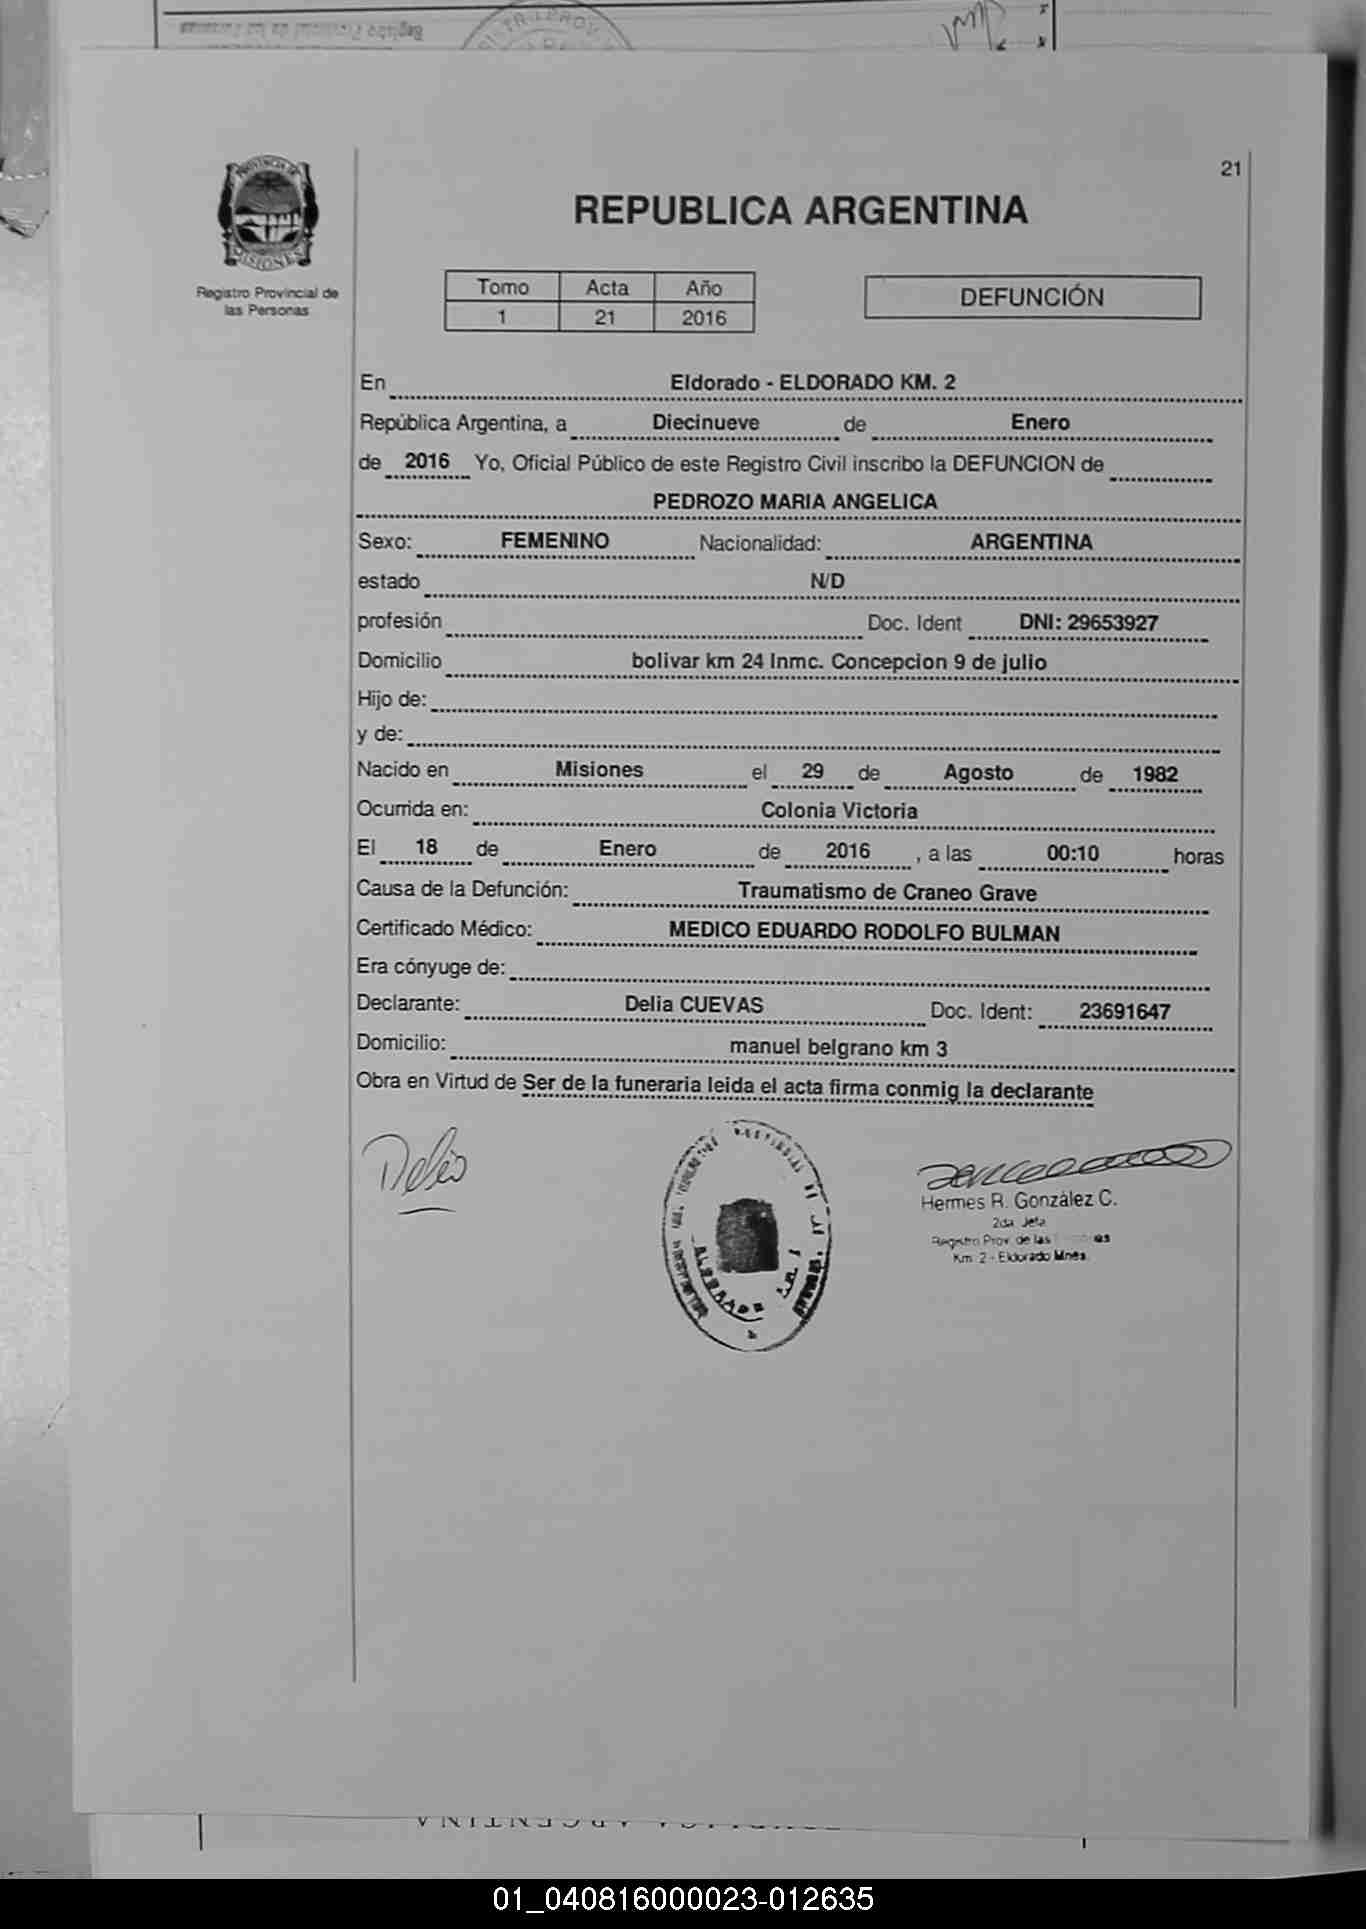 21
PROVINCIA DE
MISIONES
Registro Provincial de
las Personas
REPUBLICA ARGENTINA
Tomo Acta Año
1 21 2016
DEFUNCIÓN
En Eldorado - ELDORADO KM. 2
República Argentina, a Diecinueve de Enero
de 2016 Yo, Oficial Público de este Registro Civil inscribo la DEFUNCION de
PEDROZO MARIA ANGELICA
Sexo: FEMENINO Nacionalidad: ARGENTINA
estado N/D
profesión Doc. Ident DNI: 29653927
Domicilio bolivar km 24 Inmc. Concepcion 9 de julio
Hijo de:
y de:
Nacido en Misiones el 29 de Agosto de 1982
Ocurrida en: Colonia Victoria
El 18 de Enero de 2016 , a las 00:10 horas
Causa de la Defunción: Traumatismo de Craneo Grave
Certificado Médico: MEDICO EDUARDO RODOLFO BULMAN
Era cónyuge de:
Declarante: Delia CUEVAS Doc. Ident: 23691647
Domicilio: manuel belgrano km 3
Obra en Virtud de Ser de la funeraria leida el acta firma conmig la declarante
Delia
Hermes R. González C.
2da. Jefa
Registro Prov. de las
Km. 2 - Eldorado Mnes.
01_040816000023-012635